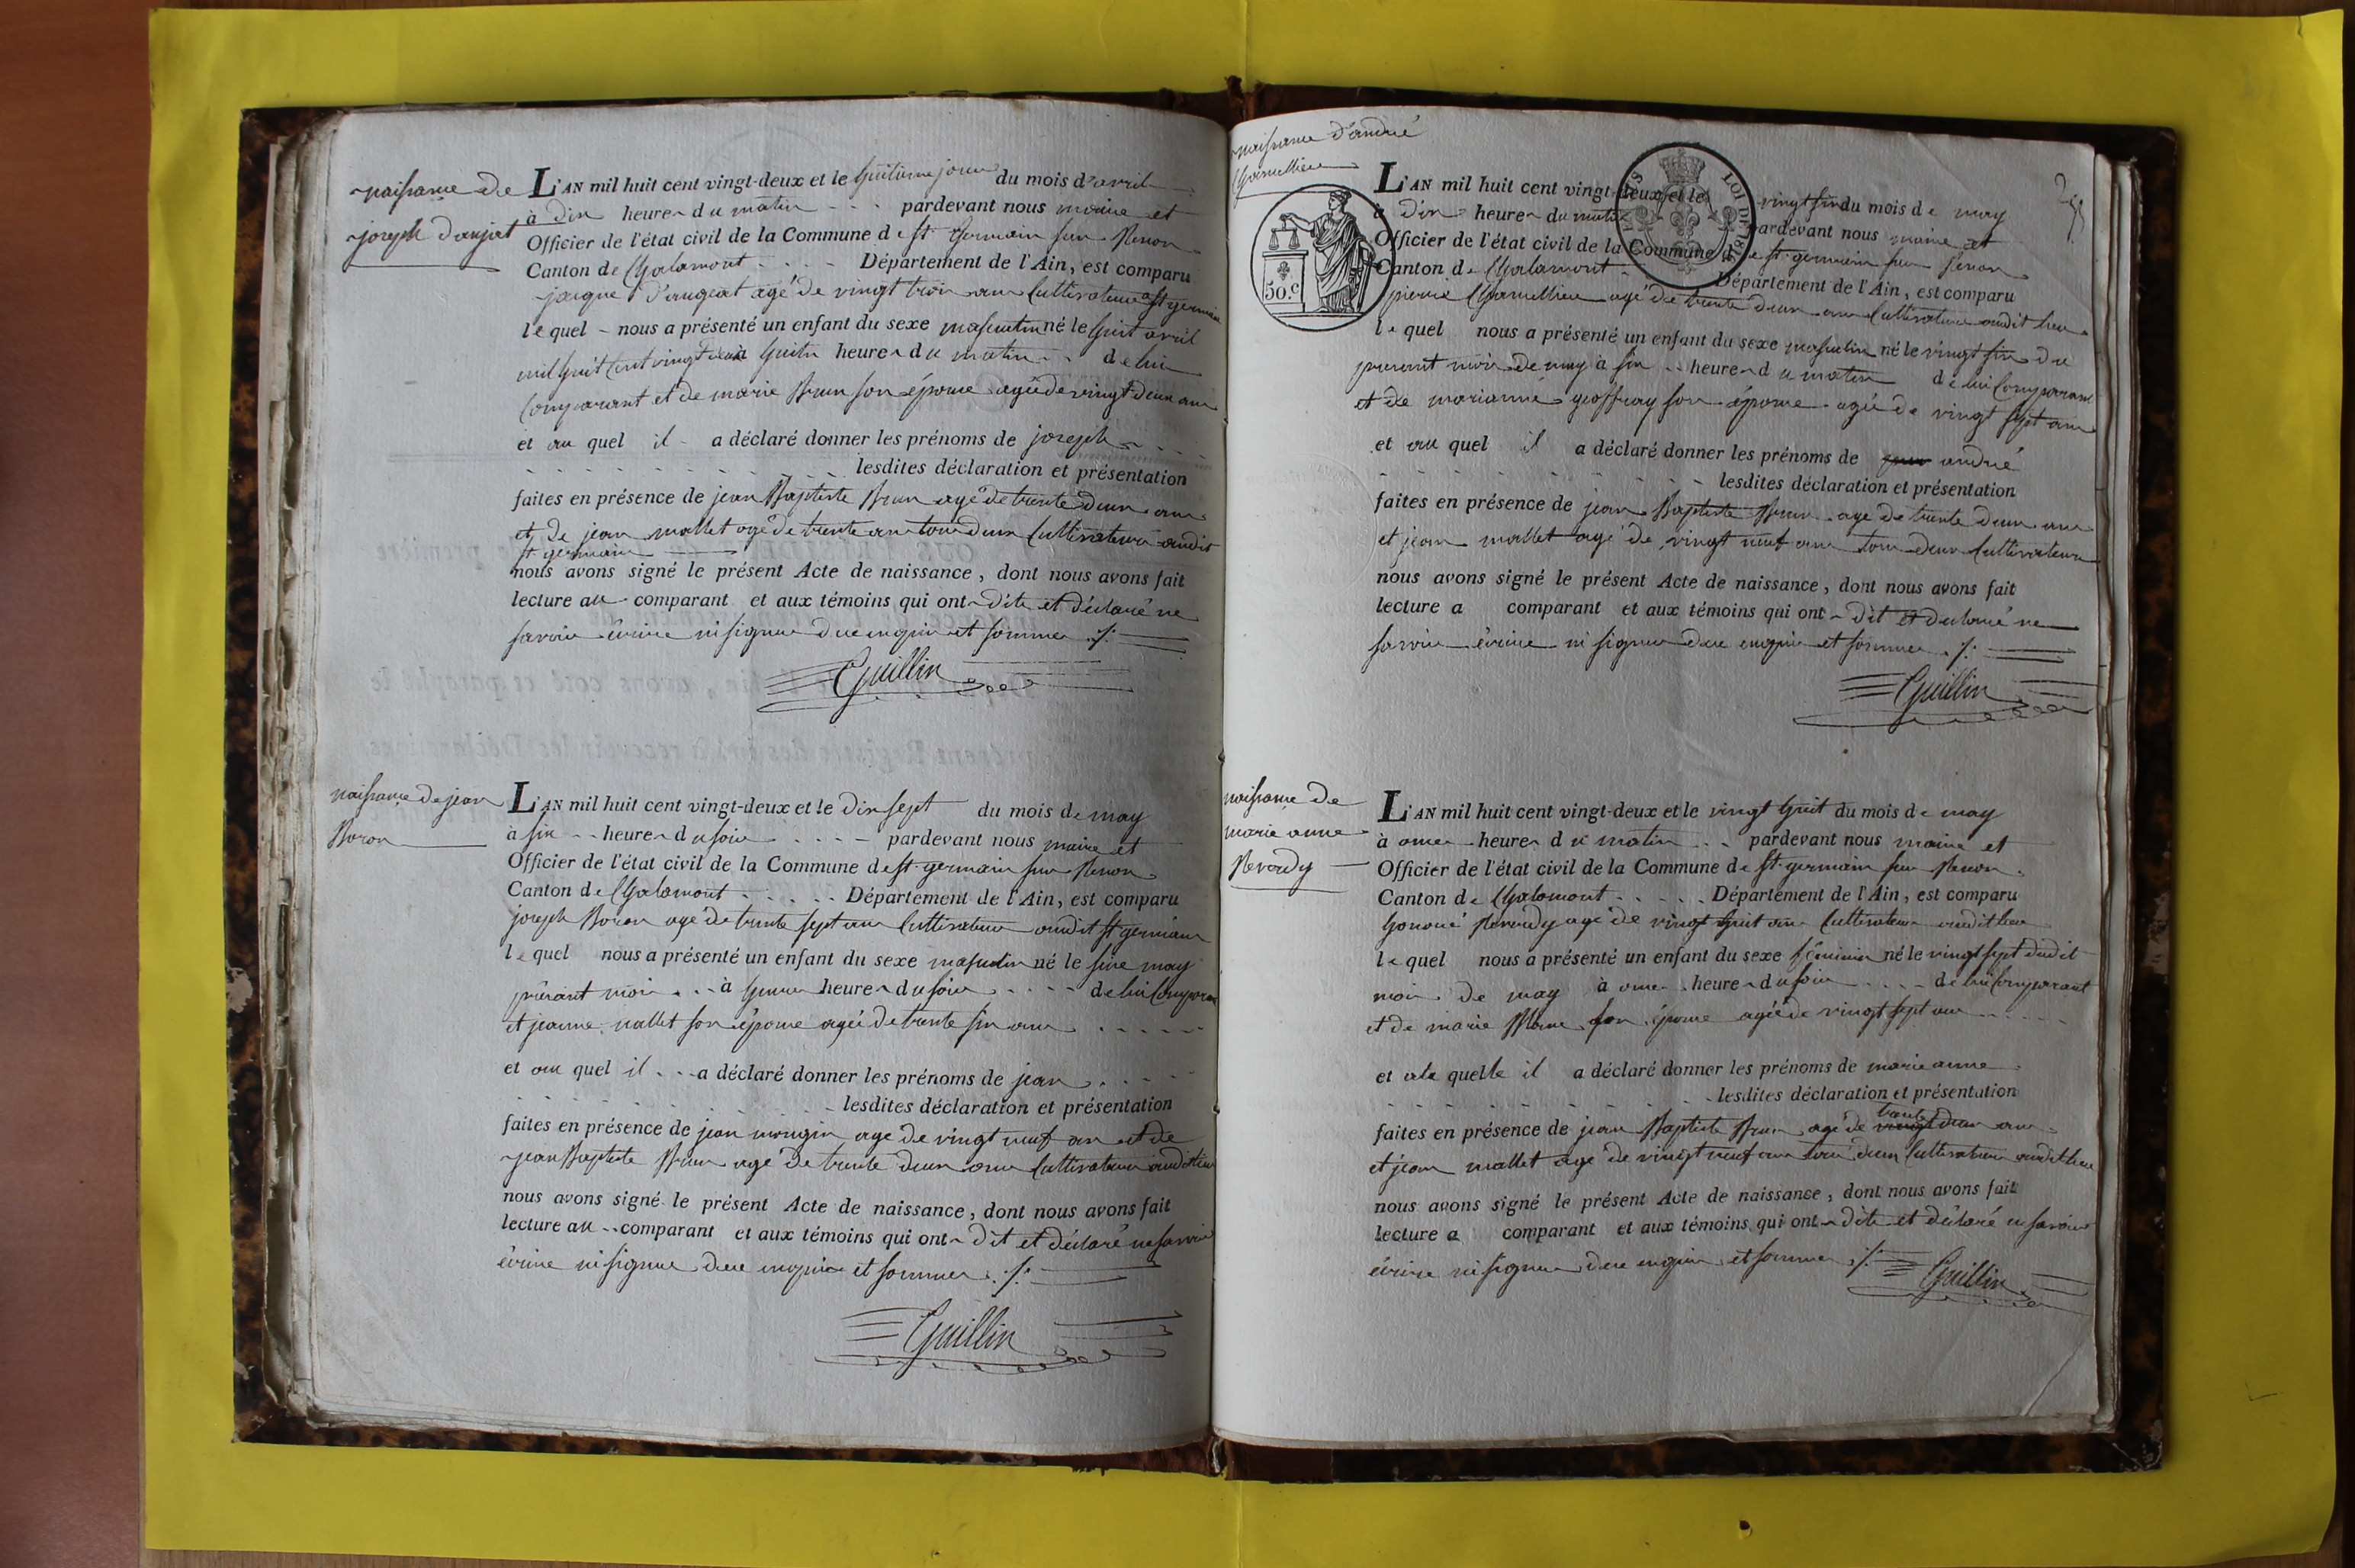 naissance de
joseph daujat
L'AN mil huit cent vingt-deux et le huitieme jour du mois d'avril
à dix heures du matin pardevant nous maire et
Officier de l'état civil de la Commune de st germain sur Renon
Canton de Chalamont Département de l'Ain, est comparu
jacque daugeat agé de vingt trois ans Cultivateur a st germain
lequel nous a présenté un enfant du sexe masculin né le huit avril
mil huit Cent vingt deux à huits heures du matin de lui
Comparant et de marie Brun son épouse agée de vingt deux ans
et au quel il a déclaré donner les prénoms de joseph
lesdites déclaration et présentation
faites en présence de jean Baptiste Brun agé de trente deux ans
et de jean mallet agé de trente ans tous deux Cultivateurs audit
st germain
nous avons signé le présent Acte de naissance, dont nous avons fait
lecture au comparant et aux témoins qui ont dits et déclaré ne
savoir écrire ni signer de ce enquis et sommes ./.
Guillin
naissance de jean
Boron
L'AN mil huit cent vingt-deux et le dix sept du mois de may
à six heures du soir pardevant nous maire et
Officier de l'état civil de la Commune de st germain sur Renon
Canton de Chalamont Département de l'Ain, est comparu
joseph Boron agé de trente sept ans Cultivateur audit st germain
lequel nous a présenté un enfant du sexe masculin né le seize may
présant mois à heures du soir de lui Comparant
et jeanne nallet son épouse agée de trente six ans
et au quel il a déclaré donner les prénoms de jean
lesdites déclaration et présentation
faites en présence de jean mongin agé de vingt neuf an et de
jean Baptiste Brun agé de trente deux ans Cultivateurs audit lieu
nous avons signé le présent Acte de naissance, dont nous avons fait
lecture au comparant et aux témoins qui ont dit et déclaré ne savoir
écrire ni signer de ce enquis et sommes ./.
Guillin
naissance d'andré
Chamellier
L'AN mil huit cent vingt-deux et le vingt six du mois de may
à dix heures du matin pardevant nous maire et
Officier de l'état civil de la Commune de st germain sur renon
Canton de Chalamont Département de l'Ain, est comparu
50.c
LOI DE 18
pierre Chamellier agé de trente deux ans Cultivateur audit lieu
lequel nous a présenté un enfant du sexe masculin né le vingt six du
present mois de may à six heures du matin de lui Comparant
et de marianne geoffray son épouse agée de vingt sept ans
et au quel il a déclaré donner les prénoms de andré
lesdites déclaration et présentation
faites en présence de jean Baptiste Brun agé de trente deux ans
et jean mallet agé de vingt neuf ans tous deux Cultivateurs
nous avons signé le présent Acte de naissance, dont nous avons fait
lecture a comparant et aux témoins qui ont dit et declaré ne
savoir écrire ni signer de ce enquis et sommes ./.
Guillin
naissance de
marie anne
Revardy
L'AN mil huit cent vingt-deux et le vingt huit du mois de may
à onze heures du matin pardevant nous maire et
Officier de l'état civil de la Commune de st germain sur Renon
Canton de Chalamont Département de l'Ain, est comparu
honoré Revardy agé de vingt huit ans Cultivateur audit lieu
lequel nous a présenté un enfant du sexe féminin né le vingt sept dudit
mois de may à onze heures du soir de lui Comparant
et de marie son épouse agée de vingt sept ans
et a la quelle il a déclaré donner les prénoms de marie anne
lesdites déclaration et présentation
faites en présence de jean Baptiste Brun agé de trente deux ans
et jean mallet agé de vingt neuf ans tous deux Cultivateurs audit lieu
nous avons signé le présent Acte de naissance, dont nous avons fait
lecture a comparant et aux témoins qui ont dits et déclaré ne savoir
écrire ni signer de ce enquis et sommes ./.
Guillin